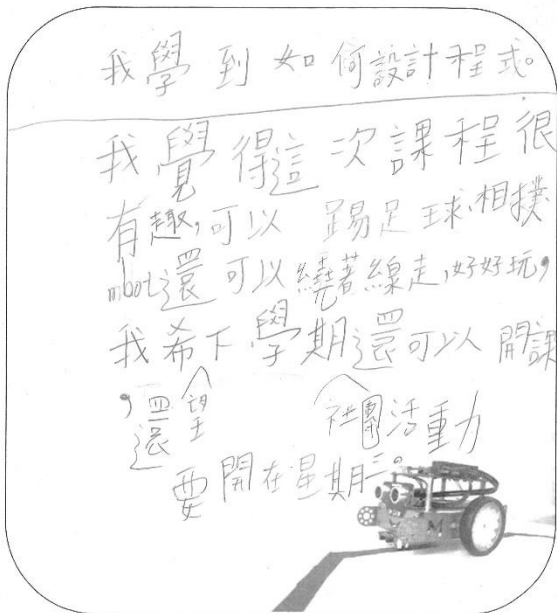 我學到如何設計程式。
我覺得這次課程很
有趣,可以踢足球、相撲、
mbot還可以繞著線走,好好玩,
我希望下學期還可以開課
,還 社團活動
要開在星期三。